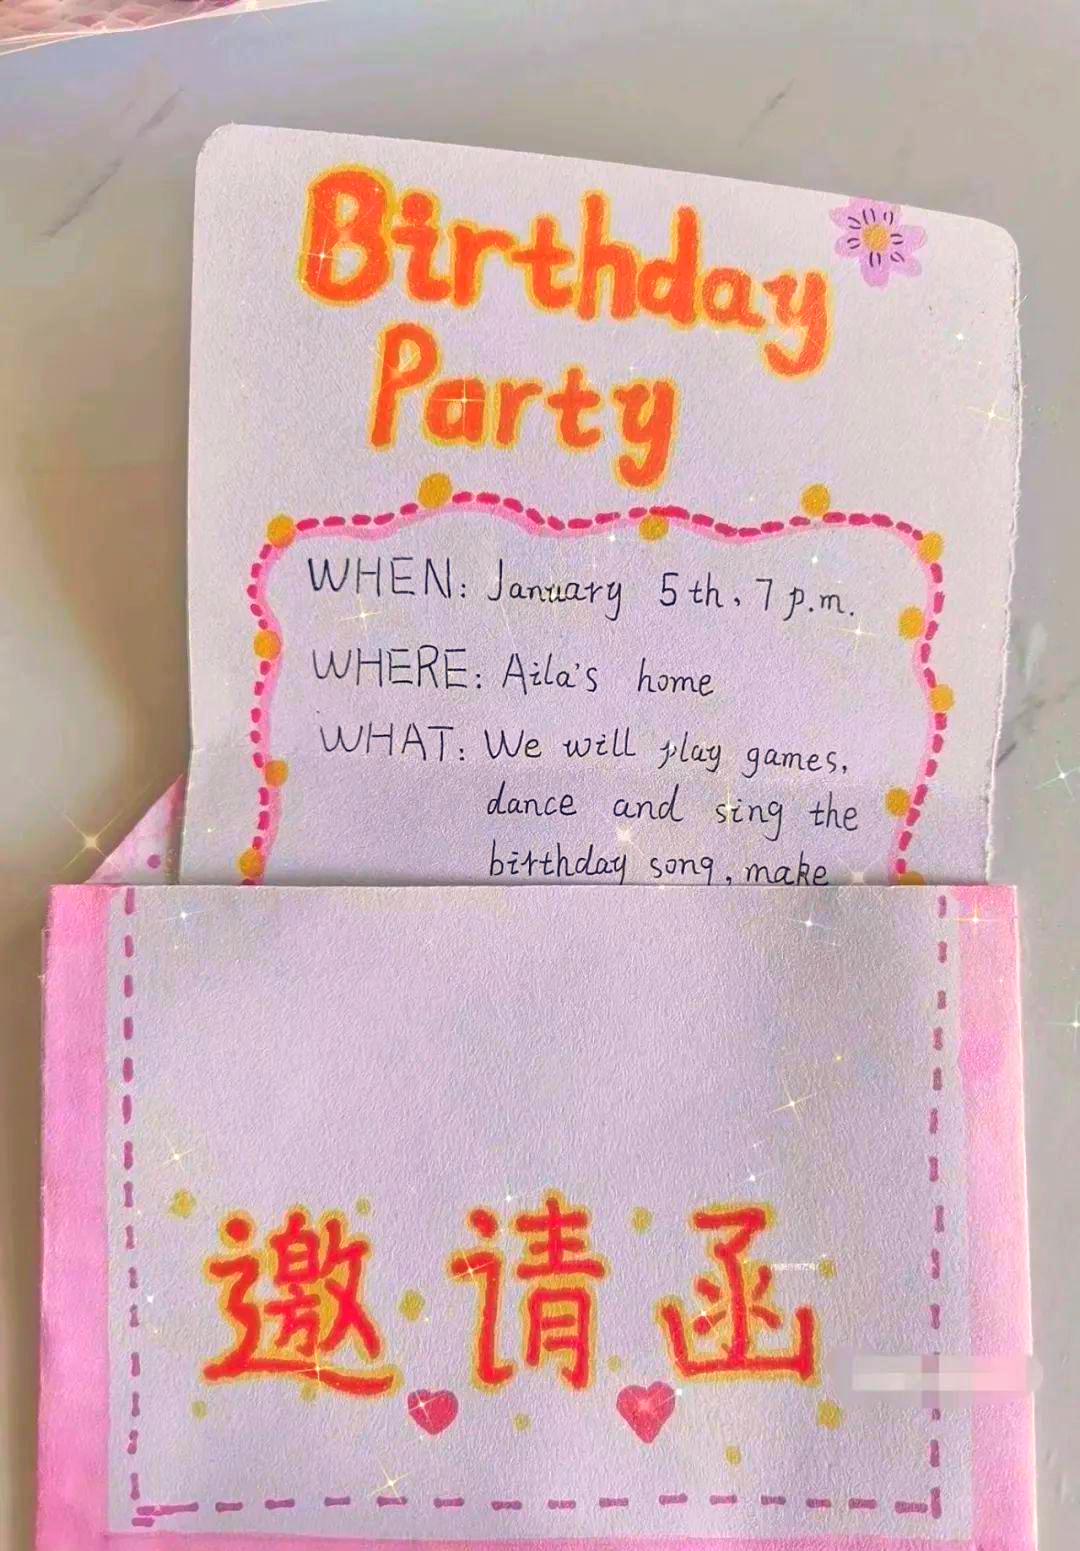 Birthday
Party
WHEN: January 5th, 7 p.m.
WHERE: Aila's home
WHAT: We will play games,
dance and sing the
birthday song, make
邀请函